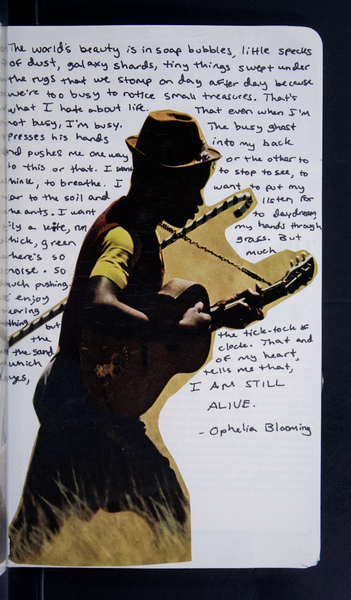 The world's beauty is in soap bubbles, little specks
of dust, galaxy shards, tiny things swept under
the rugs that we stomp on day after day because
we're too busy to notice small treasures. That's
what I hate about life. That even when I'm
not busy, I'm busy. The busy ghost
presses his hands into my back
and pushes me one way or the other to
to this or that. I want to stop to see, to
think, to breathe. I want to put my
ear to the soil and listen for
the ants. I want to daydream,
fly a kite, run my hands through
thick, green grass. But
there's so much
noise. So
much pushing.
I enjoy
thing but
the the tick-tock of
the sand clock. That and
which of my heart,
yes, tells me that,
I AM STILL
ALIVE.
- Ophelia Blooming